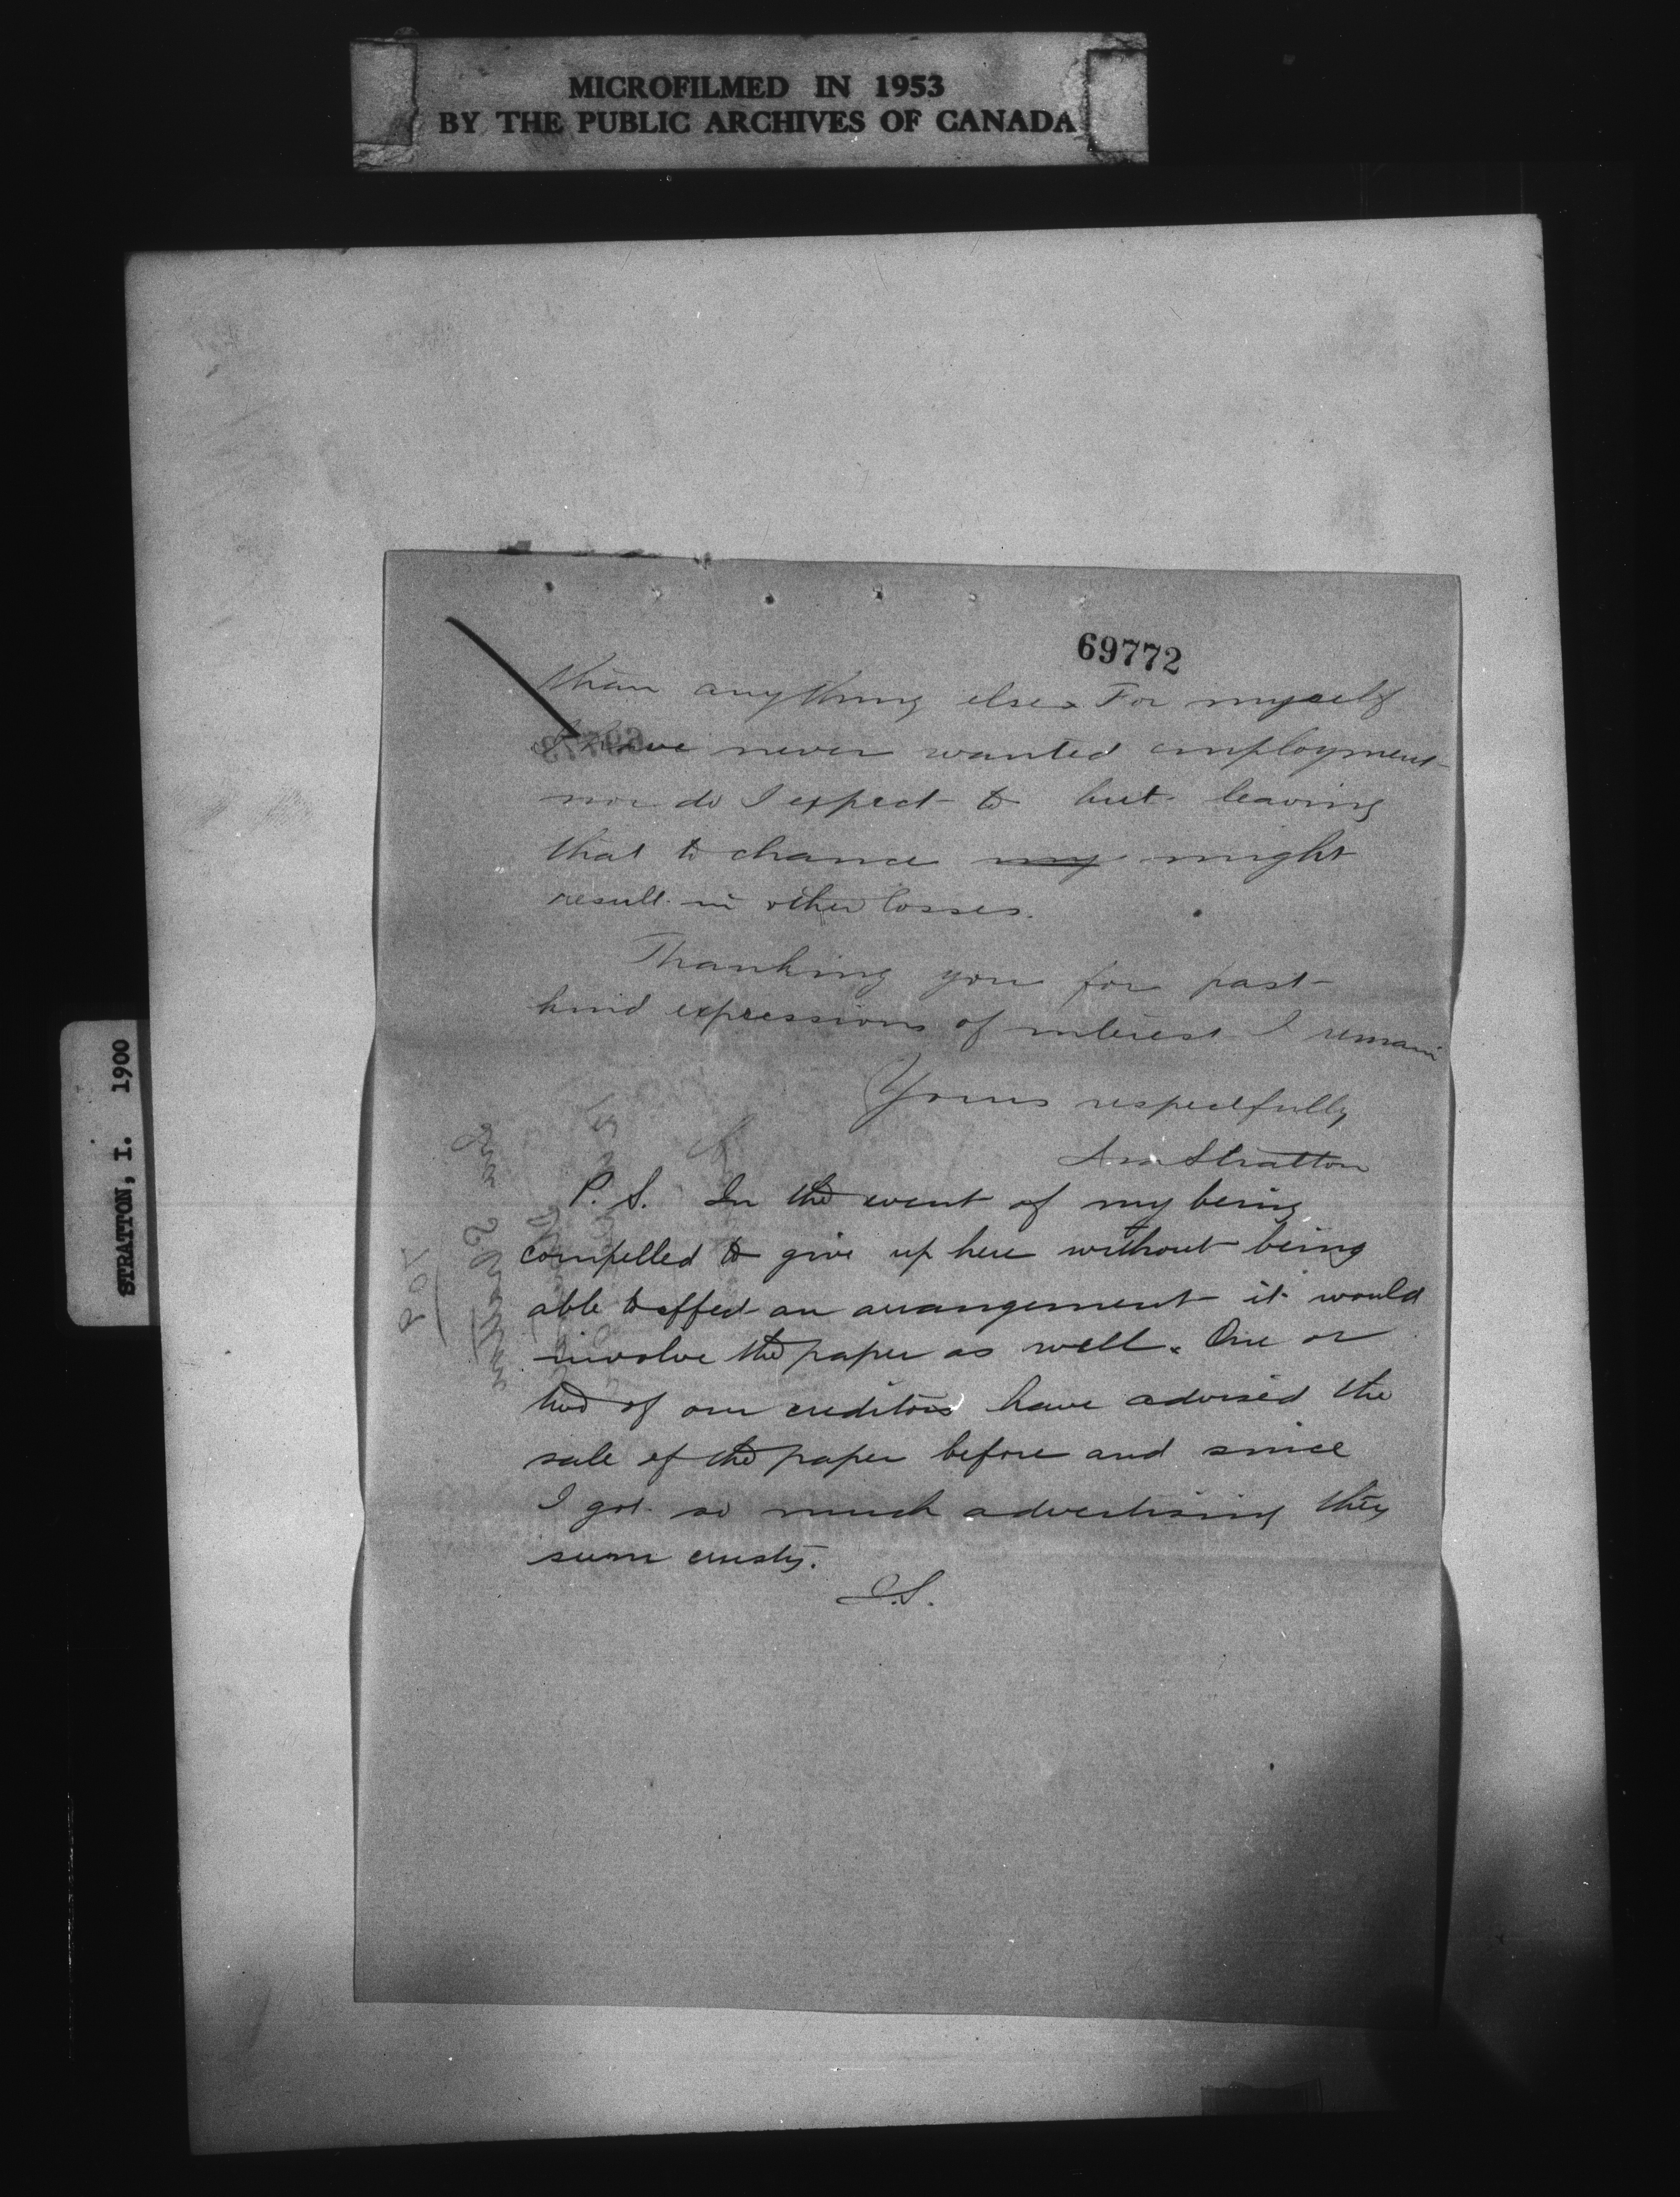 MICROFILMED IN 1953
BY THE PUBLIC ARCHIVES OF CANADA
STRATTON, I. 1900
69772
than anything else. For myself
I have never wanted employment
nor do I expect to but leaving
that to chance my might
result in other losses.
Thanking you for past
kind expressions of interest I remain
Yours respectfully
Stratton
P. S. In the event of my being
compelled to give up here without being
able to effect an arrangement it would
involve the paper as well. One or
two of our creditors have advised the
sale of the paper before and since
I got so much advertising they
seem crusty.
I.S.